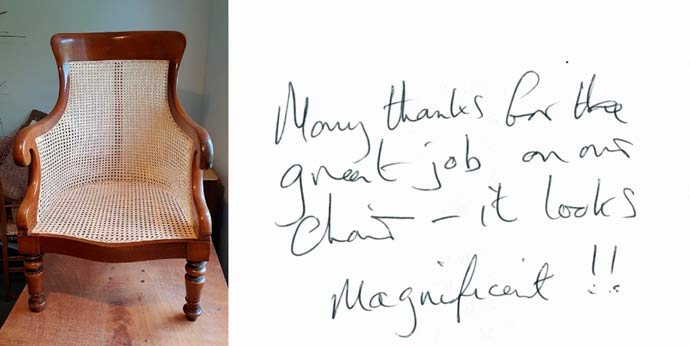 Many thanks for the
great job on our
Chair - it looks
Magnificent !!